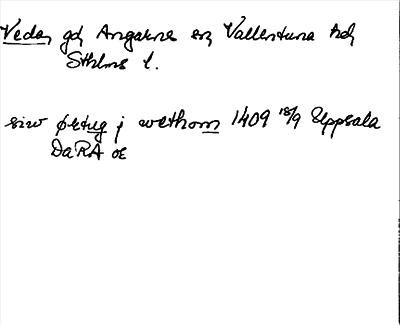 Veda, gd, Angarns sn, Vallentuna hd,
Sthlms l.
siw ørtug j wethom 1409 18/9 Uppsala
DaRA oE